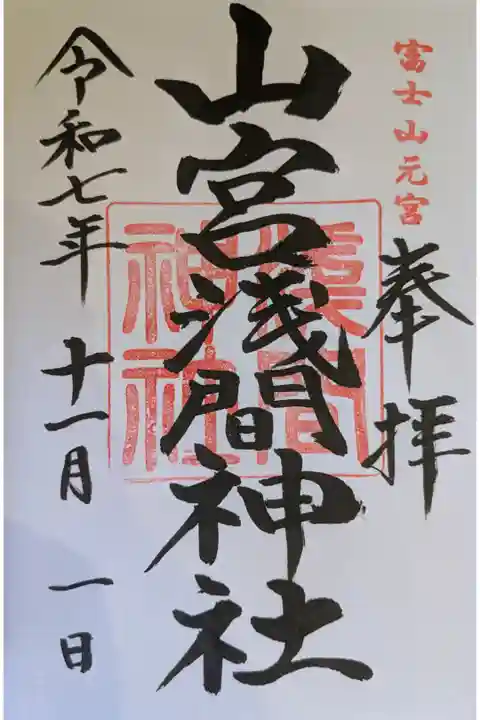 富士山元宮
奉拝
山宮浅間神社
浅間
神社
令和七年 十一月 一日